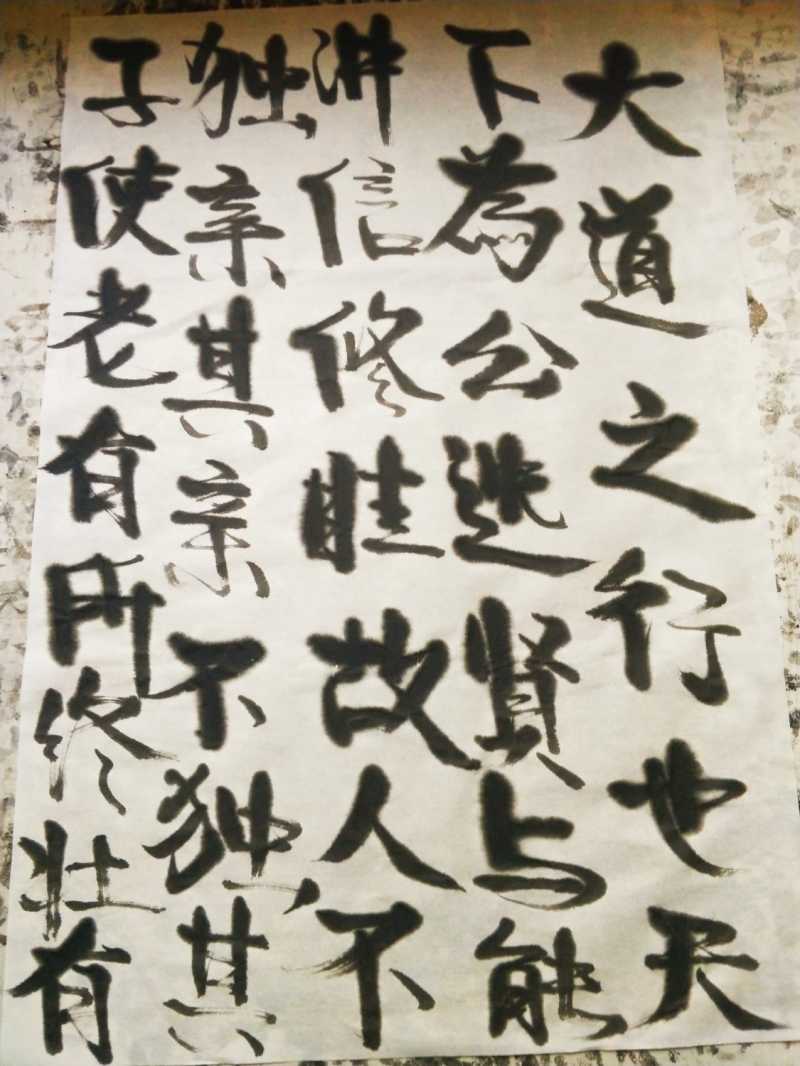 大道之行也天
下為公选賢与能
讲信修睦故人不
独亲其亲不独其
子使老有所终壮有